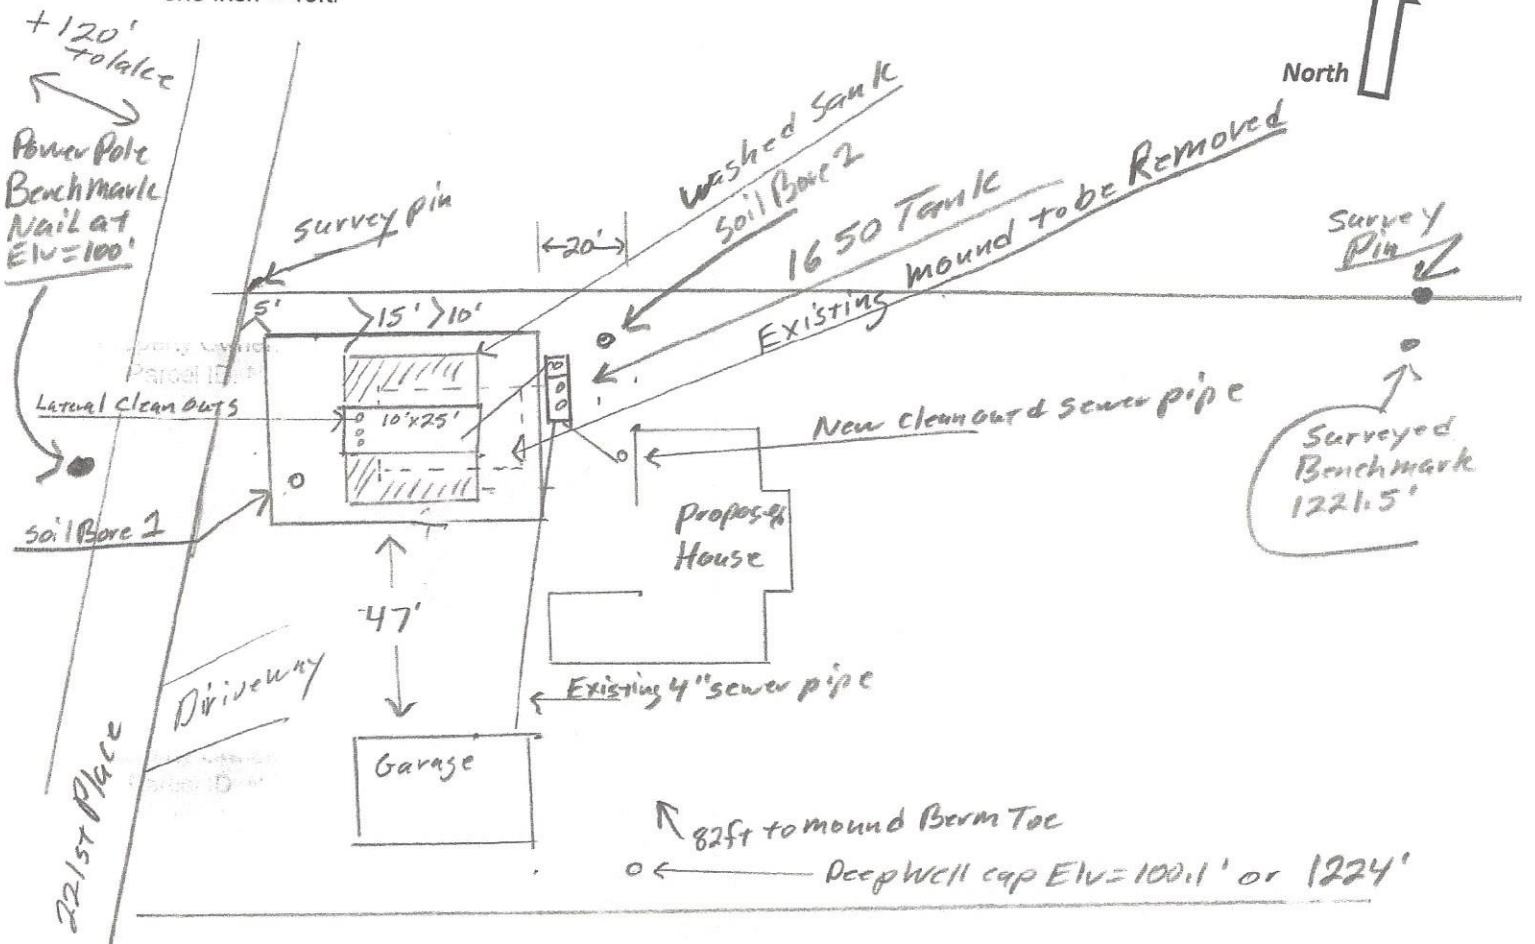 +120'
to lake
North
Power Pole
Benchmark
Nail at
Elv=100'
survey pin
20'
washed sank
Soil Bore 2
1650 Tank
Existing mound to be Removed
Survey
Pin
5'
15' > 10'
Parcel ID
Lateral Clean outs
10'x25'
New Cleanout & sewer pipe
Surveyed
Benchmark
1221.5'
Soil Bore 1
Proposed
House
47'
Driveway
Existing 4" sewer pipe
221st Place
Garage
Parcel ID
82ft to mound Berm Toe
Deep Well cap Elv=100.1' or 1224'